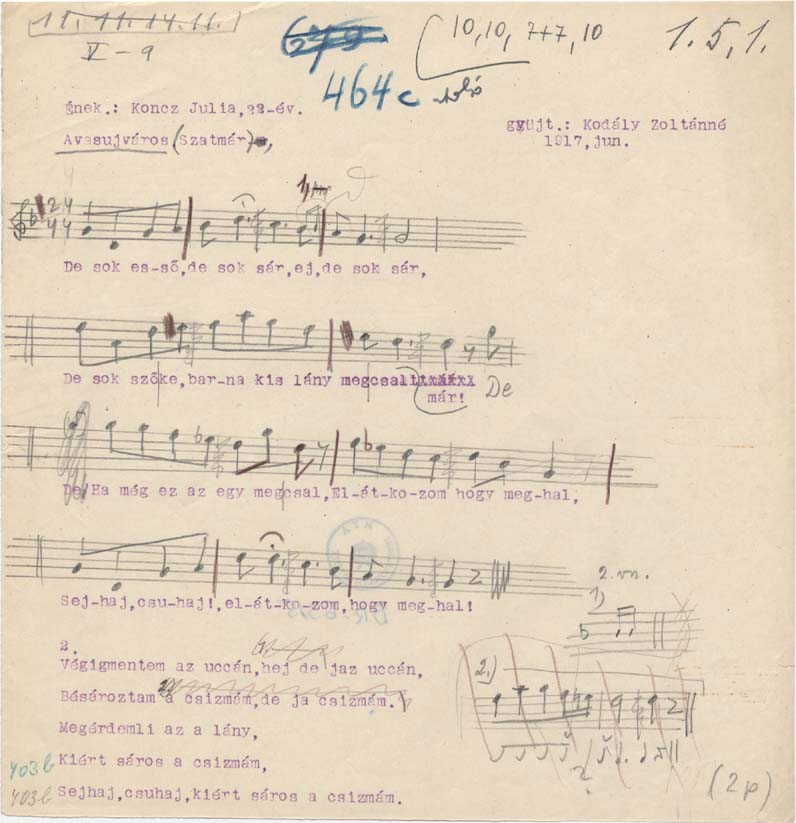 11. 11. 14. 11.
V-9
679
464c
10, 10, 7+7, 10
utolsó
1. 5, 1.
Ének.: Koncz Julia,22-év.
Avasujváros (Szatmár),
gyüjt.: Kodály Zoltánné
1917,jun.
De sok es-ső,de sok sár,ej,de sok sár,
De sok szőke,bar-na kis lány megcsalt
már! De
De Ha még ez az egy megcsal,El-át-ko-zom hogy meg-hal,
Sej-haj,csu-haj!,el-át-ko-zom,hogy meg-hal!
2. vn.
1)
2.
Végigmentem az uccán,hej de jaz uccán,
Bésároztam a csizmám,de ja csizmám.
Megérdemli az a lány,
Kiért sáros a csizmám,
Sejhaj,csuhaj,kiért sáros a csizmám.
2.)
403b
403b
(2p)